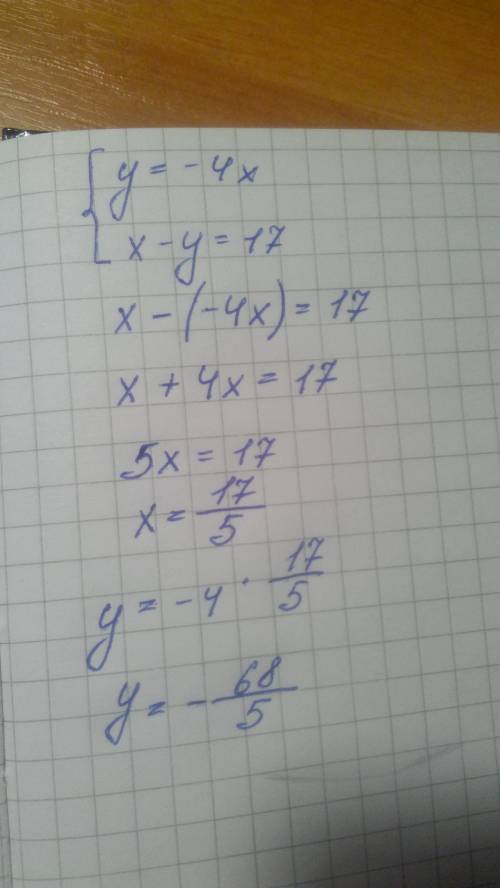 y = -4x
x - y = 17
x - (-4x) = 17
x + 4x = 17
5x = 17
x = 17/5
y = -4 · 17/5
y = -68/5